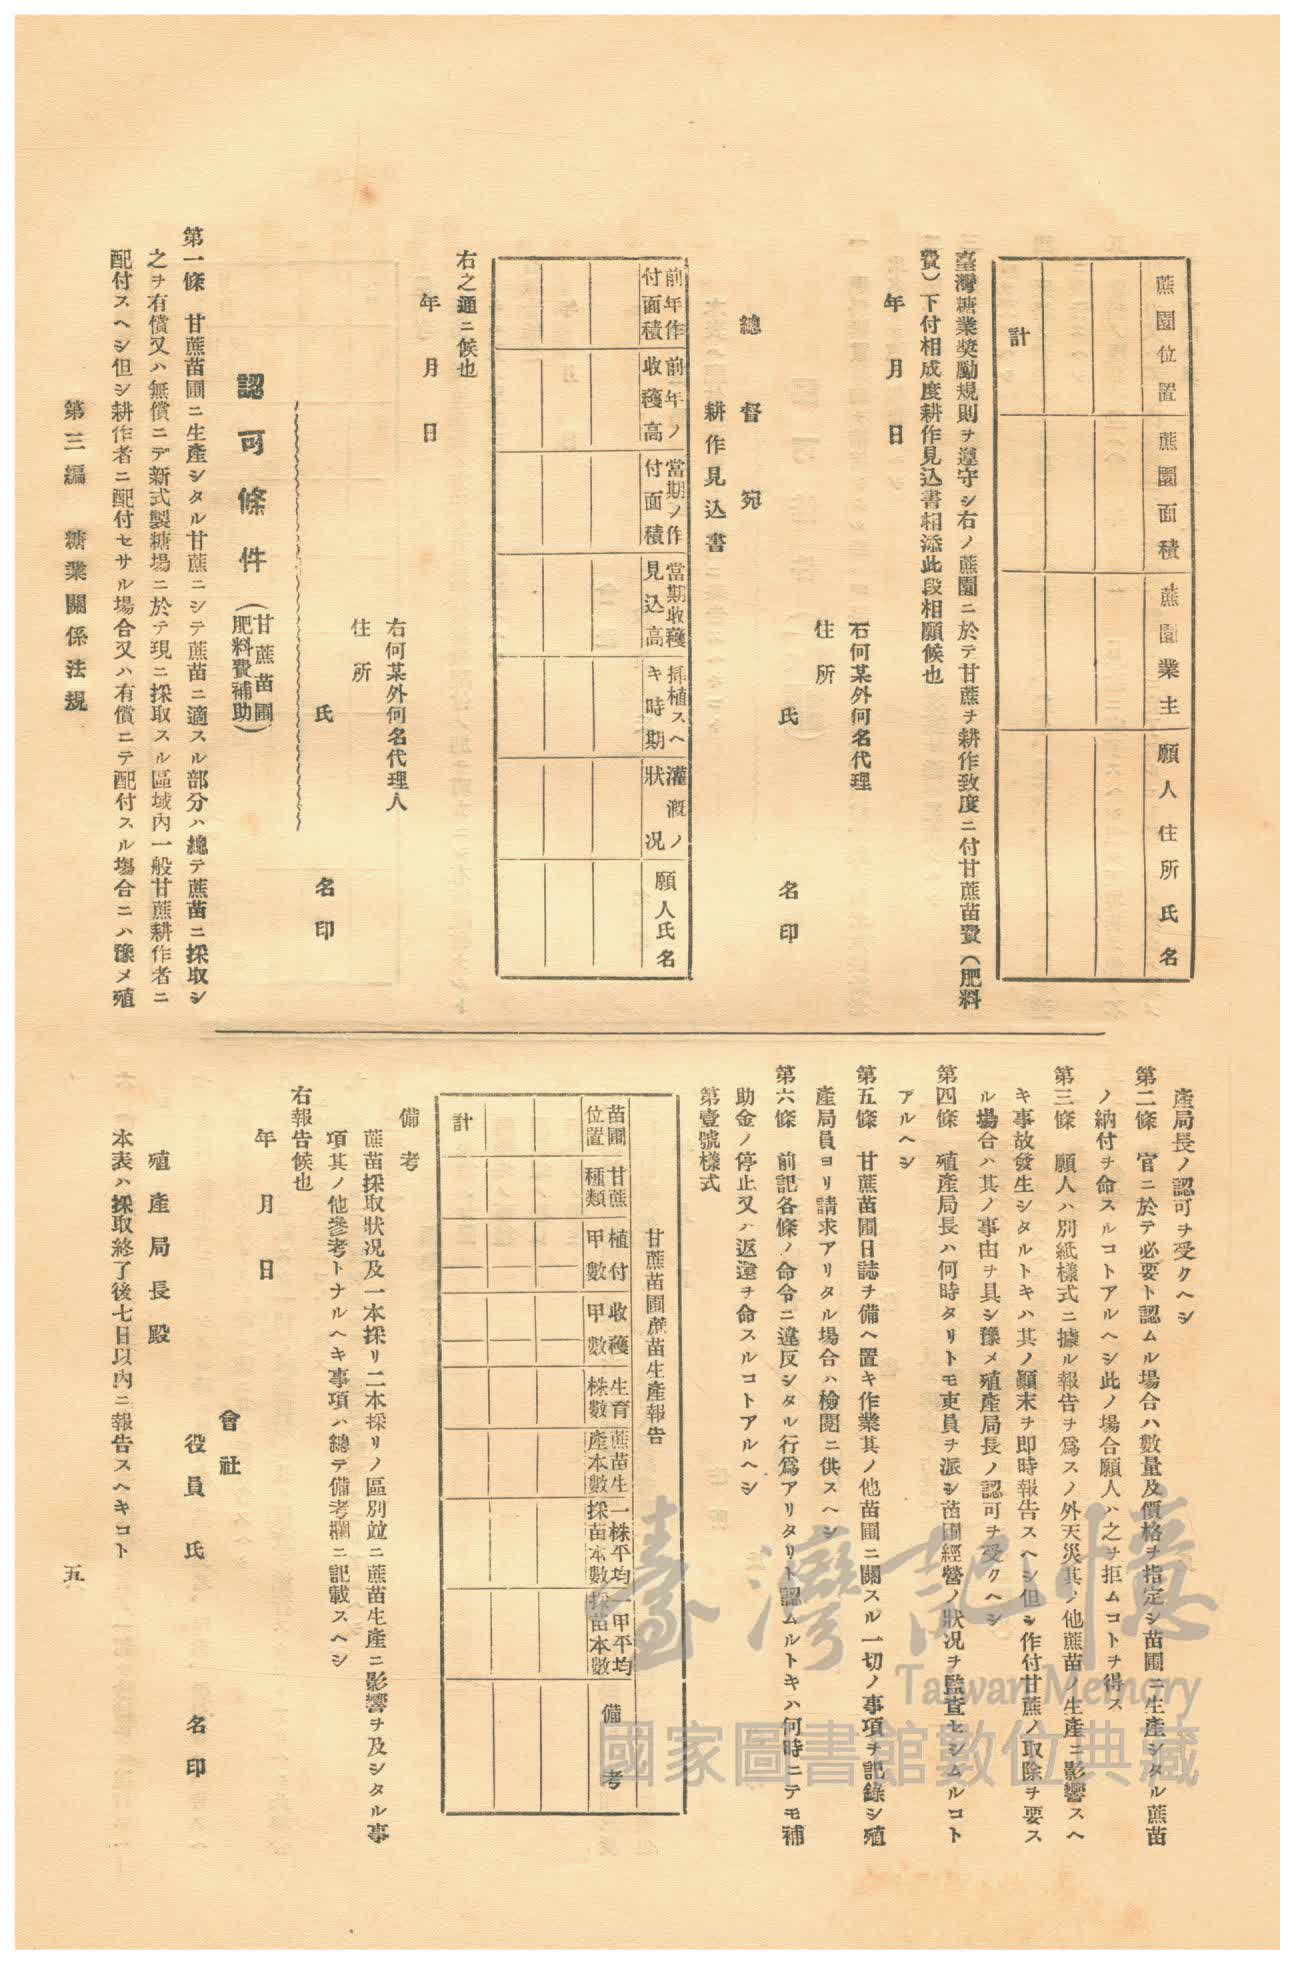 蔗園位置
蔗園面積
蔗園業主
願人住所氏名
計
臺灣糖業奬勵規則ヲ遵守シ右ノ蔗園ニ於テ甘蔗ヲ耕作致度ニ付甘蔗苗費(肥料
費)下付相成度耕作見込書相添此段相願候也
年月日
右何某外何名代理
住所
氏名印
總督宛
耕作見込書
前年作付面積
前年ノ收穫高
當期ノ作付面積
當期收穫見込高
揷植スヘキ時期
灌漑ノ狀况
願人氏名
右之通ニ候也
年月日
右何某外何名代理人
住所
氏名印
認可條件(甘蔗苗圃肥料費補助)
第一條 甘蔗苗圃ニ生產シタル甘蔗ニシテ蔗苗ニ適スル部分ハ總テ蔗苗ニ採取シ
之ヲ有償又ハ無償ニテ新式製糖場ニ於テ現ニ採取スル區域內一般甘蔗耕作者ニ
配付スヘシ但シ耕作者ニ配付セサル場合又ハ有償ニテ配付スル塲合ニハ豫メ殖
第三編 糖業關係法規
產局長ノ認可ヲ受クヘシ
第二條 官ニ於テ必要ト認ムル場合ハ數量及價格ヲ指定シ苗圃ニ生產シタル蔗苗
ノ納付ヲ命スルコトアルヘシ此ノ場合願人ハ之ヲ拒ムコトヲ得ス
第三條 願人ハ別紙樣式ニ據ル報告ヲ爲スノ外天災其ノ他蔗苗ノ生產ニ影響スヘ
キ事故發生シタルトキハ其ノ顚末ヲ即時報告スヘシ但シ作付甘蔗ノ取除ヲ要ス
ル場合ハ其ノ事由ヲ具シ豫メ殖產局長ノ認可ヲ受クヘシ
第四條 殖產局長ハ何時タリトモ吏員ヲ派シ苗圃經營ノ狀况ヲ監査セシムルコト
アルヘシ
第五條 甘蔗苗圃日誌ヲ備ヘ置キ作業其ノ他苗圃ニ關スル一切ノ事項ヲ記錄シ殖
產局員ヨリ請求アリタル場合ハ檢閱ニ供スヘシ
第六條 前記各條ノ命令ニ違反シタル行爲アリタリト認ムルトキハ何時ニテモ補
助金ノ停止又ハ返還ヲ命スルコトアルヘシ
第壹號樣式
甘蔗苗圃蔗苗生產報告
苗圃位置
甘蔗種類
植付甲數
收穫甲數
生育株數
蔗苗生產本數
一株平均採苗本數
一甲平均採苗本數
備考
計
備考
蔗苗採取狀况及一本採リ二本採リノ區別竝ニ蔗苗生產ニ影響ヲ及シタル事
項其ノ他參考トナルヘキ事項ハ總テ備考欄ニ記載スヘシ
右報告候也
年月日
會社
役員氏名印
殖產局長殿
本表ハ採取終了後七日以內ニ報告スヘキコト
五
臺灣記憶
Taiwan Memory
國家圖書館數位典藏